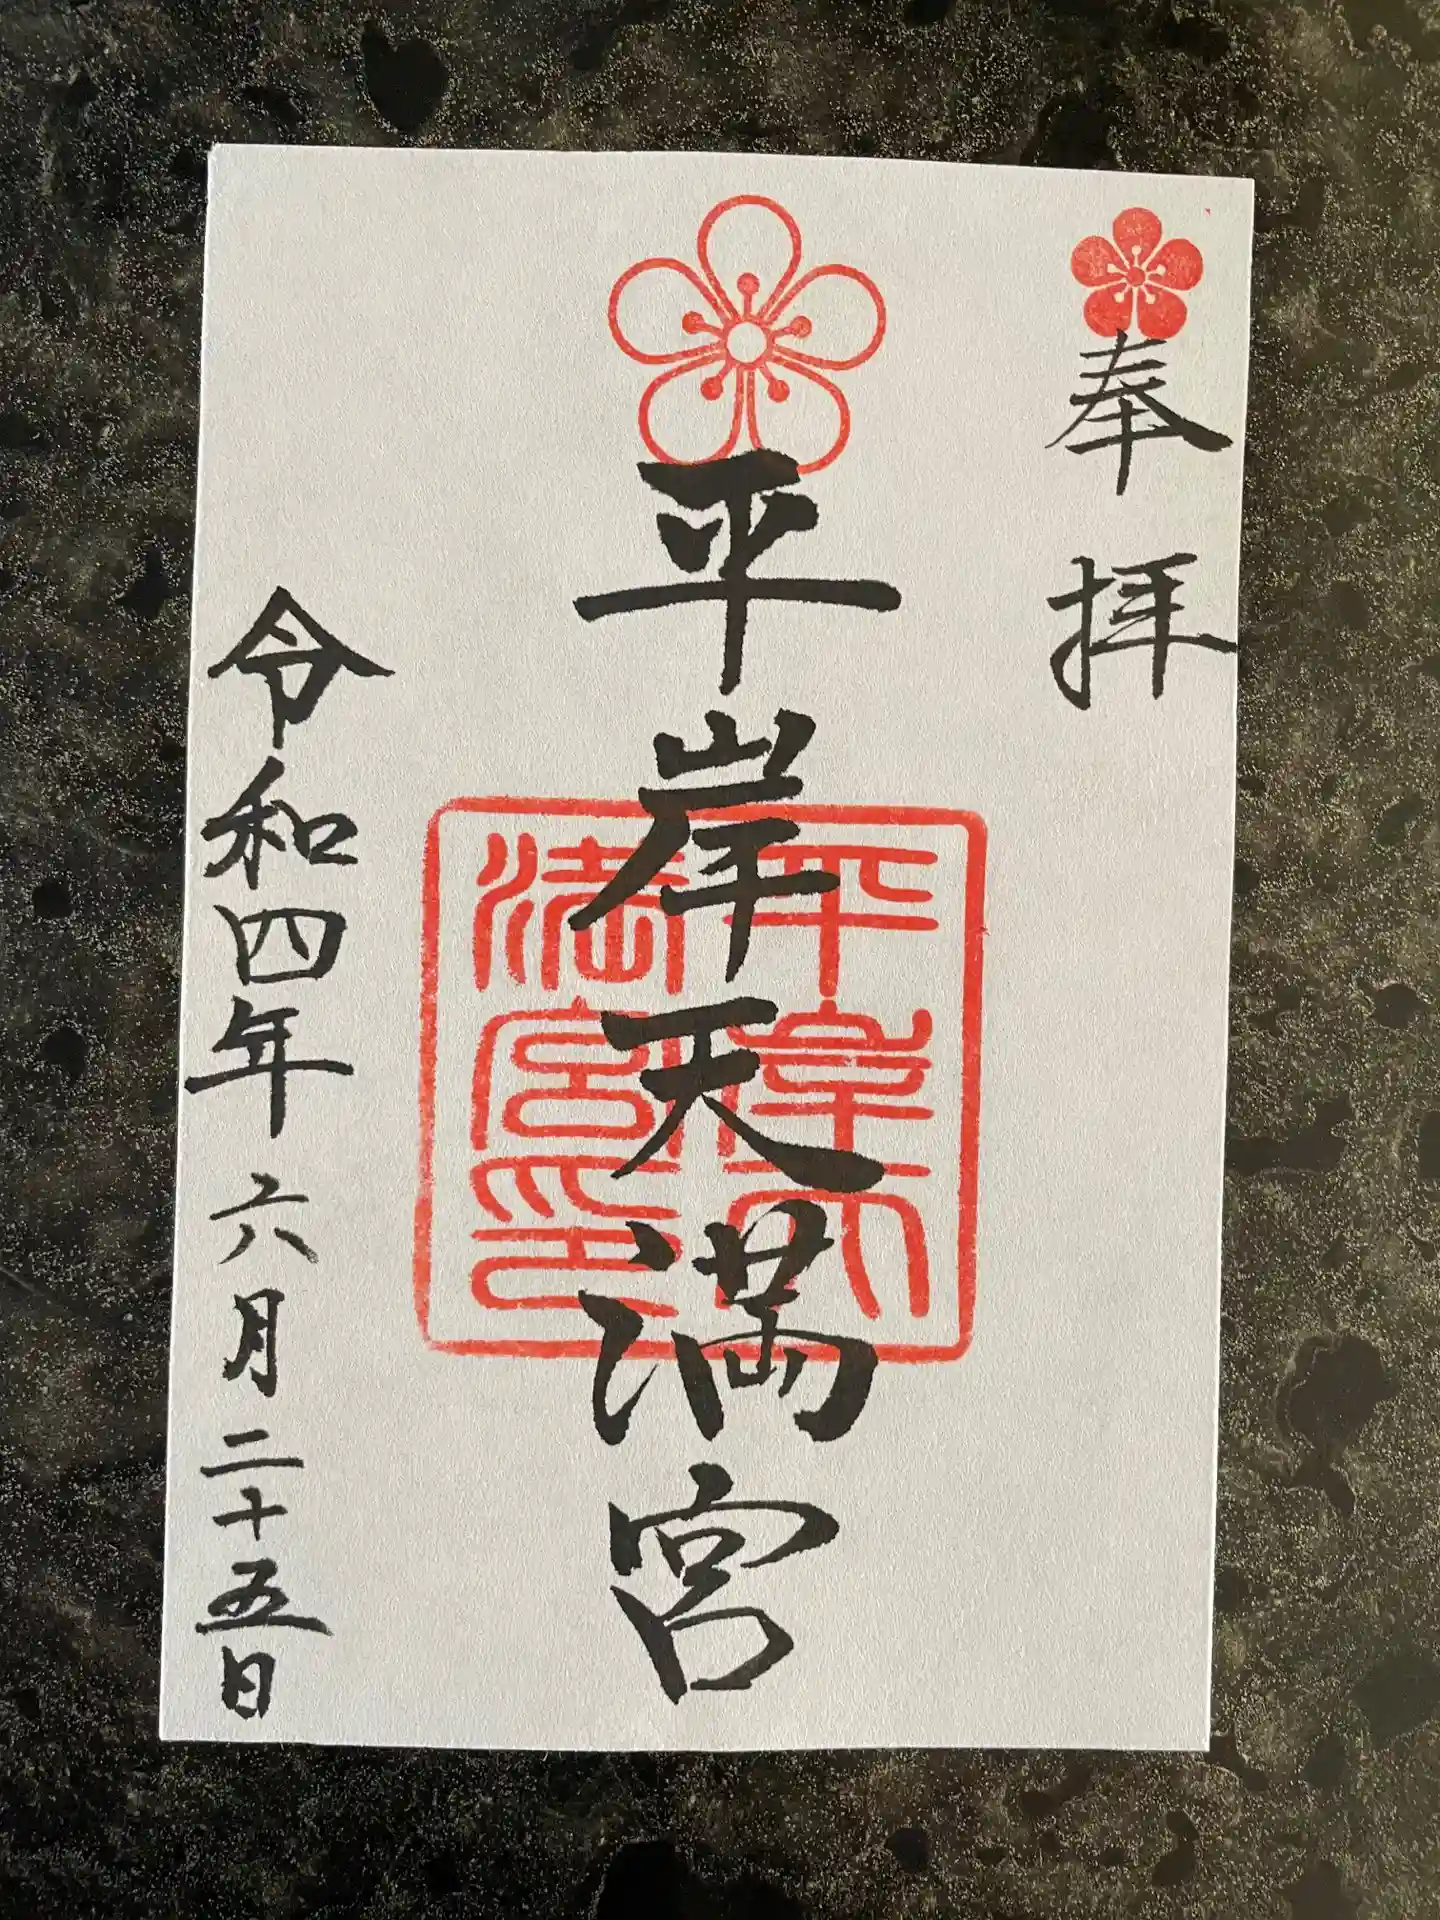 奉拝
平岸天満宮
平岸天
満宮印
令和四年六月二十五日